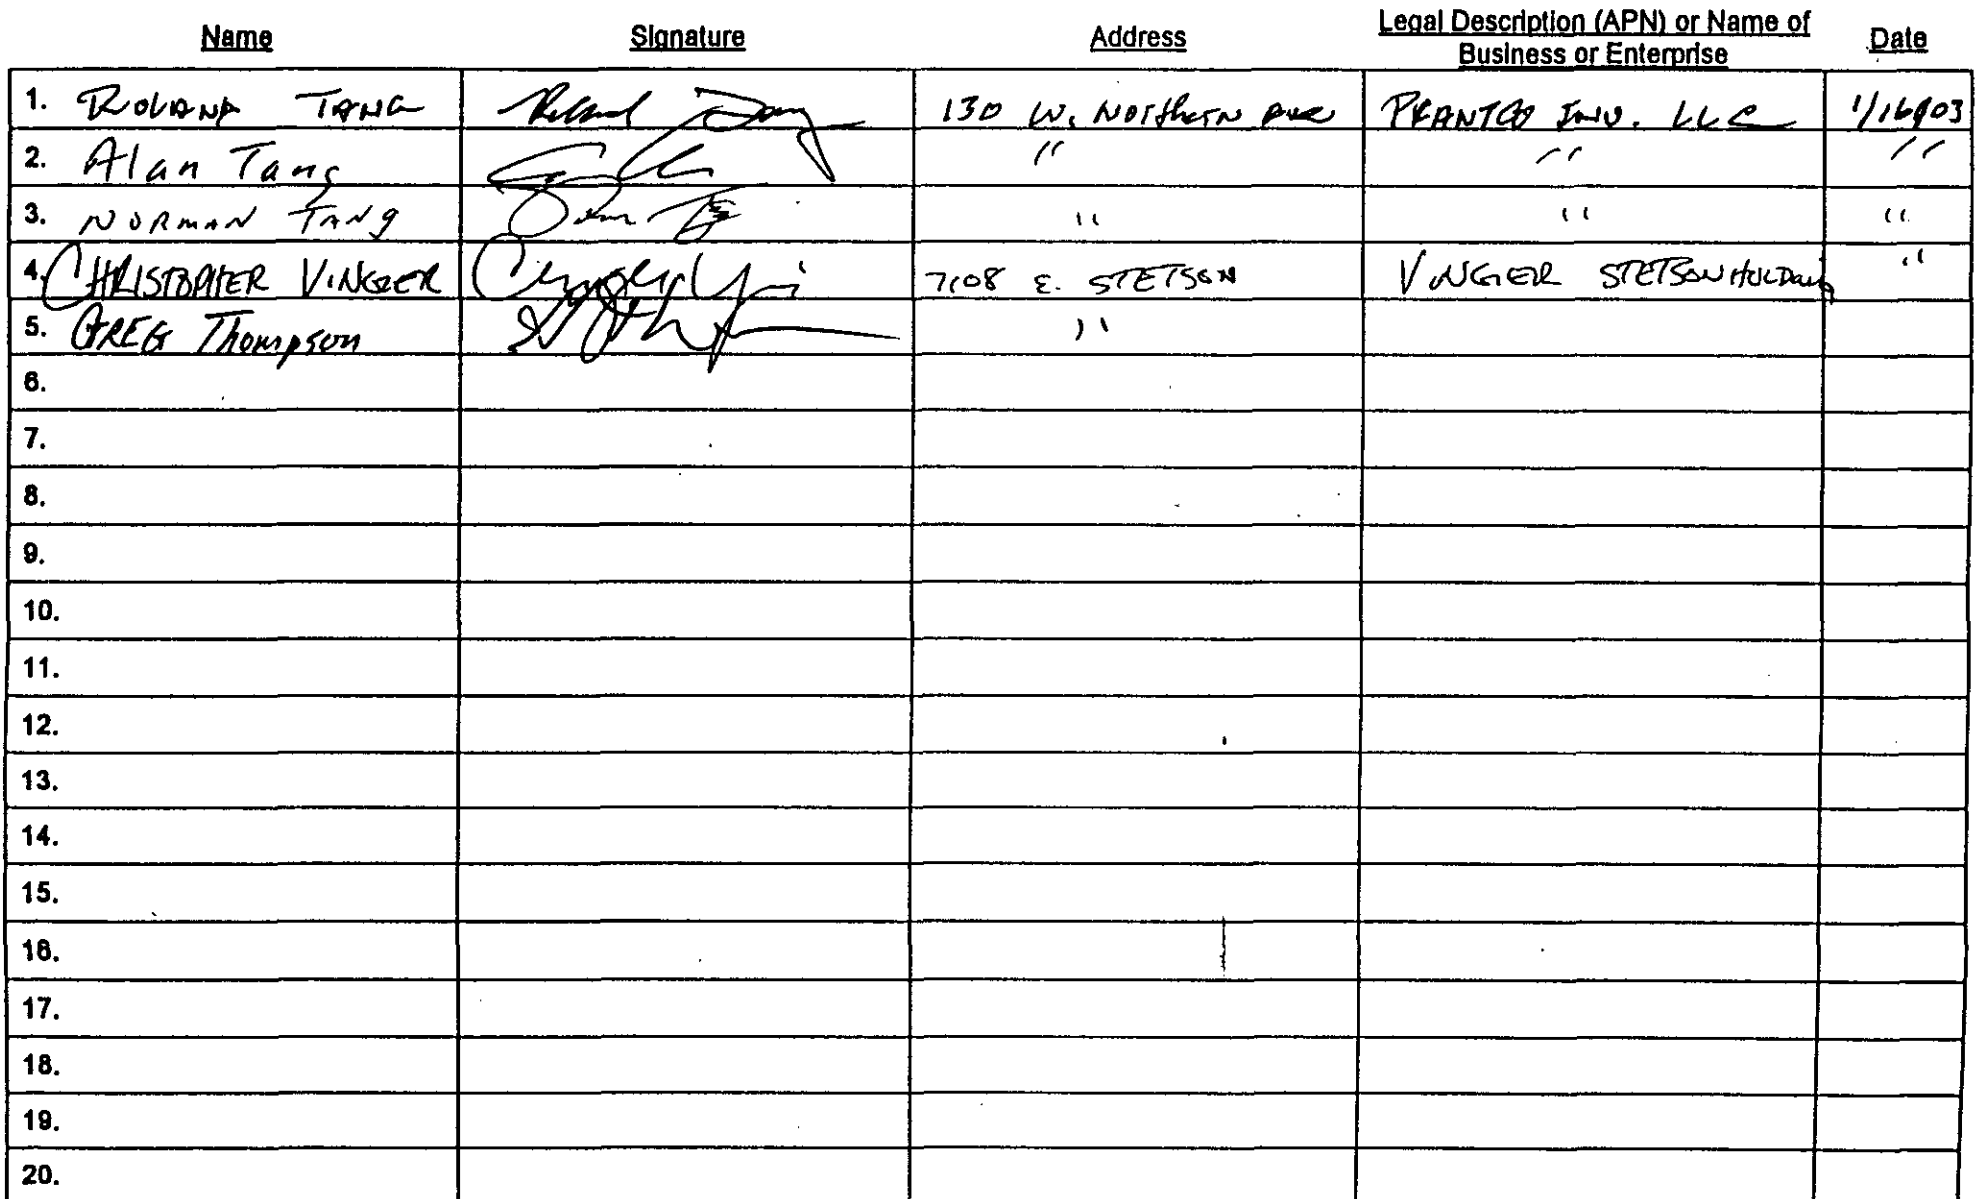 Name Signature Address Legal Description (APN) or Name of Business or Enterprise Date
1. ROLAND TANG 130 W. Northern Ave INV. LLC
2. Alan Tang " " "
3. NORMAN TANG " " "
4. CHRISTOPHER VINGIER 7108 E. STETSON VINGIER STETSON HOLDING "
5. GREG Thompson "
6.
7.
8.
9.
10.
11.
12.
13.
14.
15.
16.
17.
18.
19.
20.